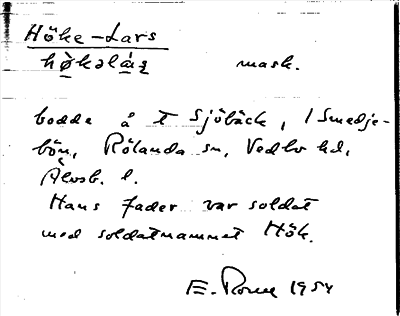 Höke-Lars
hø̀kəlá̱ʂ mask.
bodde å t Sjöbäck, i Smedje-
bön, Rölanda sn, Vedbo hd,
Älvsb. l.
Hans fader var soldat
med soldatnamnet Hök.
E. 1954